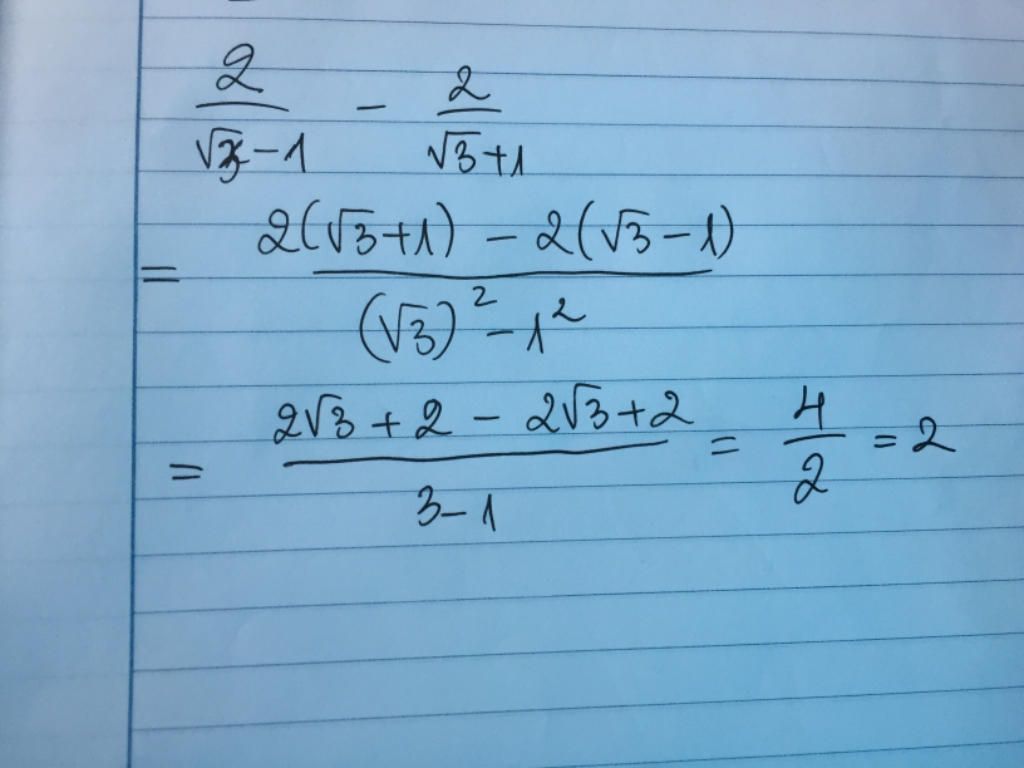 2/(√3-1) - 2/(√3+1)
= (2(√3+1) - 2(√3-1))/((√3)² - 1²)
= (2√3 + 2 - 2√3 + 2)/(3-1) = 4/2 = 2